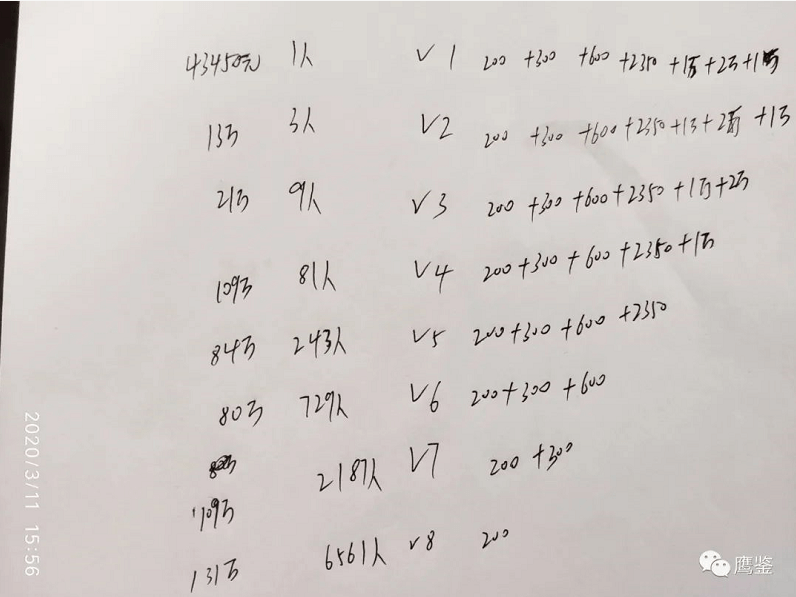 43450元 1人 V1 200 +300 +600 +2350 +1万 +2万 +1万
13万 3人 V2 200 +300 +600 +2350 +1万 +2万 +1万
21万 9人 V3 200 +300 +600 +2350 +1万 +2万
109万 81人 V4 200 +300 +600 +2350 +1万
84万 243人 V5 200 +300 +600 +2350
80万 729人 V6 200 +300 +600
2187人 V7 200 +300
109万
131万 6561人 V8 200
2020/3/11 15:56
鹰鉴